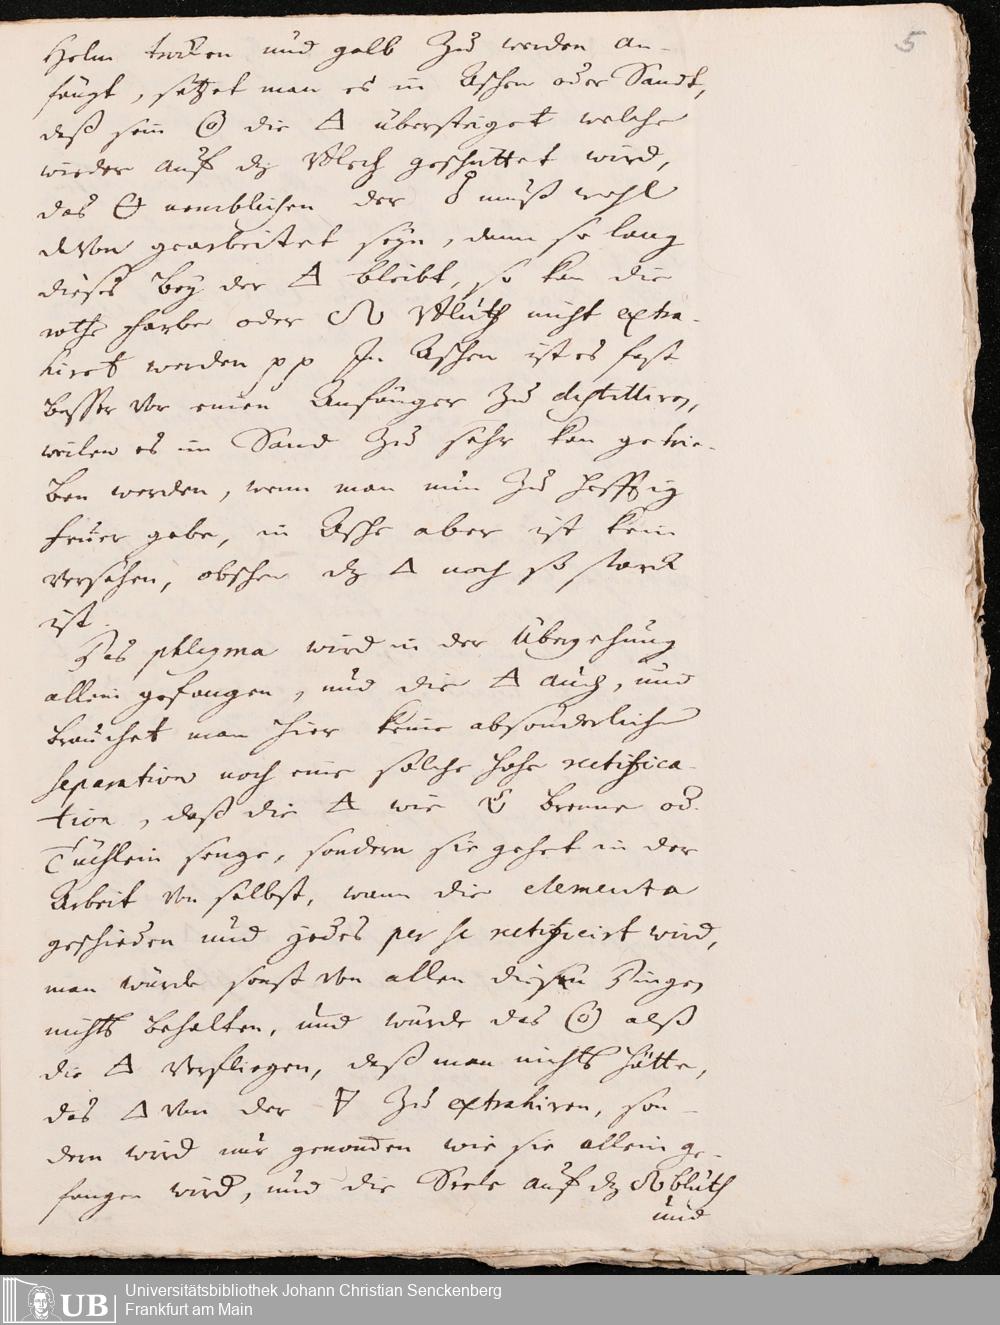 5
Helm trucken und gelb zu werden an-
fängt, setzet man es in Aschen oder Sandt,
daß sein die 🜁 übersteiget welche
wieder auf dz Blech geschüttet wird,
das nemblichen der muß wohl
davon gearbeitet seyn, dann so lang
dieses bey der 🜁 bleibt, so kan die
rothe Farbe oder Bluth nicht extra-
hirt werden pp In Aschen ist es fast
besser vor einen Anfänger zu destilliren,
weilen es im Sand zu sehr kan getrie-
ben werden, wenn man nun zu hefftig
feuer gebe, in Asche aber ist kein
versehen, obschon dz 🜂 noch so starck
ist.
Das phlegma wird in der Übergehung
allein gefangen, und die 🜁 auch, und
brauchet man hier keine absonderliche
separation noch eine solche hohe rectifica-
tion, daß die 🜁 wie brenne od.
Tüchlein senge, sondern sie gehet in der
Arbeit von selbst, wann die elementa
geschieden und jedes per se rectificirt wird,
man würde sonst von allen diesen Dingen
nichts behalten, und würde das alß
die 🜁 verfliegen, daß man nichts hätte,
das 🜂 von der 🜃 zu extrahiren, son-
dern wird nur genomen wie sie allein ge-
fangen wird, und die Seele auf dz bluth
und
Universitätsbibliothek Johann Christian Senckenberg
Frankfurt am Main
UB